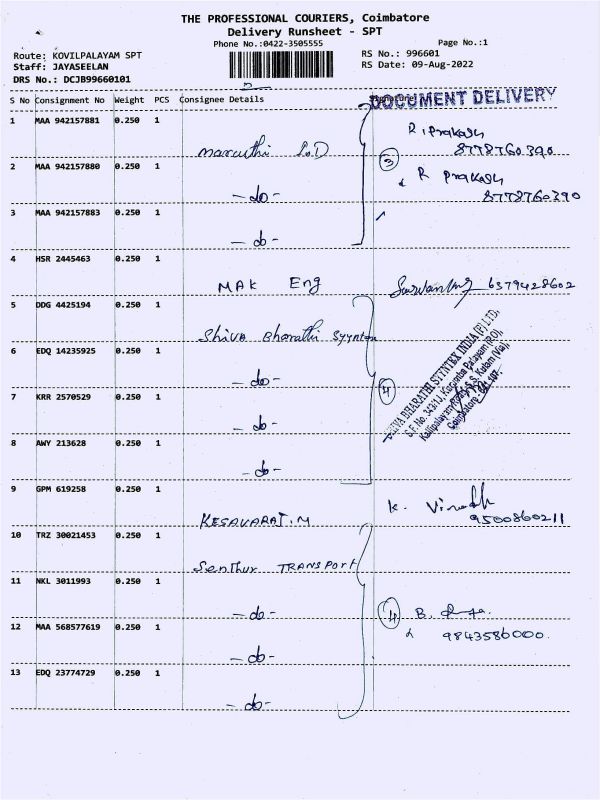 THE PROFESSIONAL COURIERS, Coimbatore
Delivery Runsheet - SPT
Phone No.:0422-3505555
Page No.:1
Route: KOVILPALAYAM SPT
RS No.: 996601
Staff: JAYASEELAN
RS Date: 09-Aug-2022
DRS No.: DCJB99660101
S No Consignment No Weight PCS Consignee Details
DOCUMENT DELIVERY
1 MAA 942157881 0.250 1
R. Prakash
8778760390
2 MAA 942157880 0.250 1
3
R Prakash
8778760390
- do -
3 MAA 942157883 0.250 1
- do -
4 HSR 2445463 0.250 1
MAK Eng 6379428602
5 DDG 4425194 0.250 1
Shiva Bharathi
6 EDQ 14235925 0.250 1
- do -
7 KRR 2570529 0.250 1
4
- do -
SHIVA BHARATHI SYNTEX INDIA (P) LTD,
S.F. No. 343/1J, Kurumba Palayam (PO),
Kalipalayam S.S. Kulam (Via),
Coimbatore - 641 107.
8 AWY 213628 0.250 1
- do -
9 GPM 619258 0.250 1
KESAVARAJ.M
K. Vinodh
9500860211
10 TRZ 30021453 0.250 1
Senthur TRANSPORT
11 NKL 3011993 0.250 1
- do -
4
B.
9843586000.
12 MAA 568577619 0.250 1
- do -
13 EDQ 23774729 0.250 1
- do -